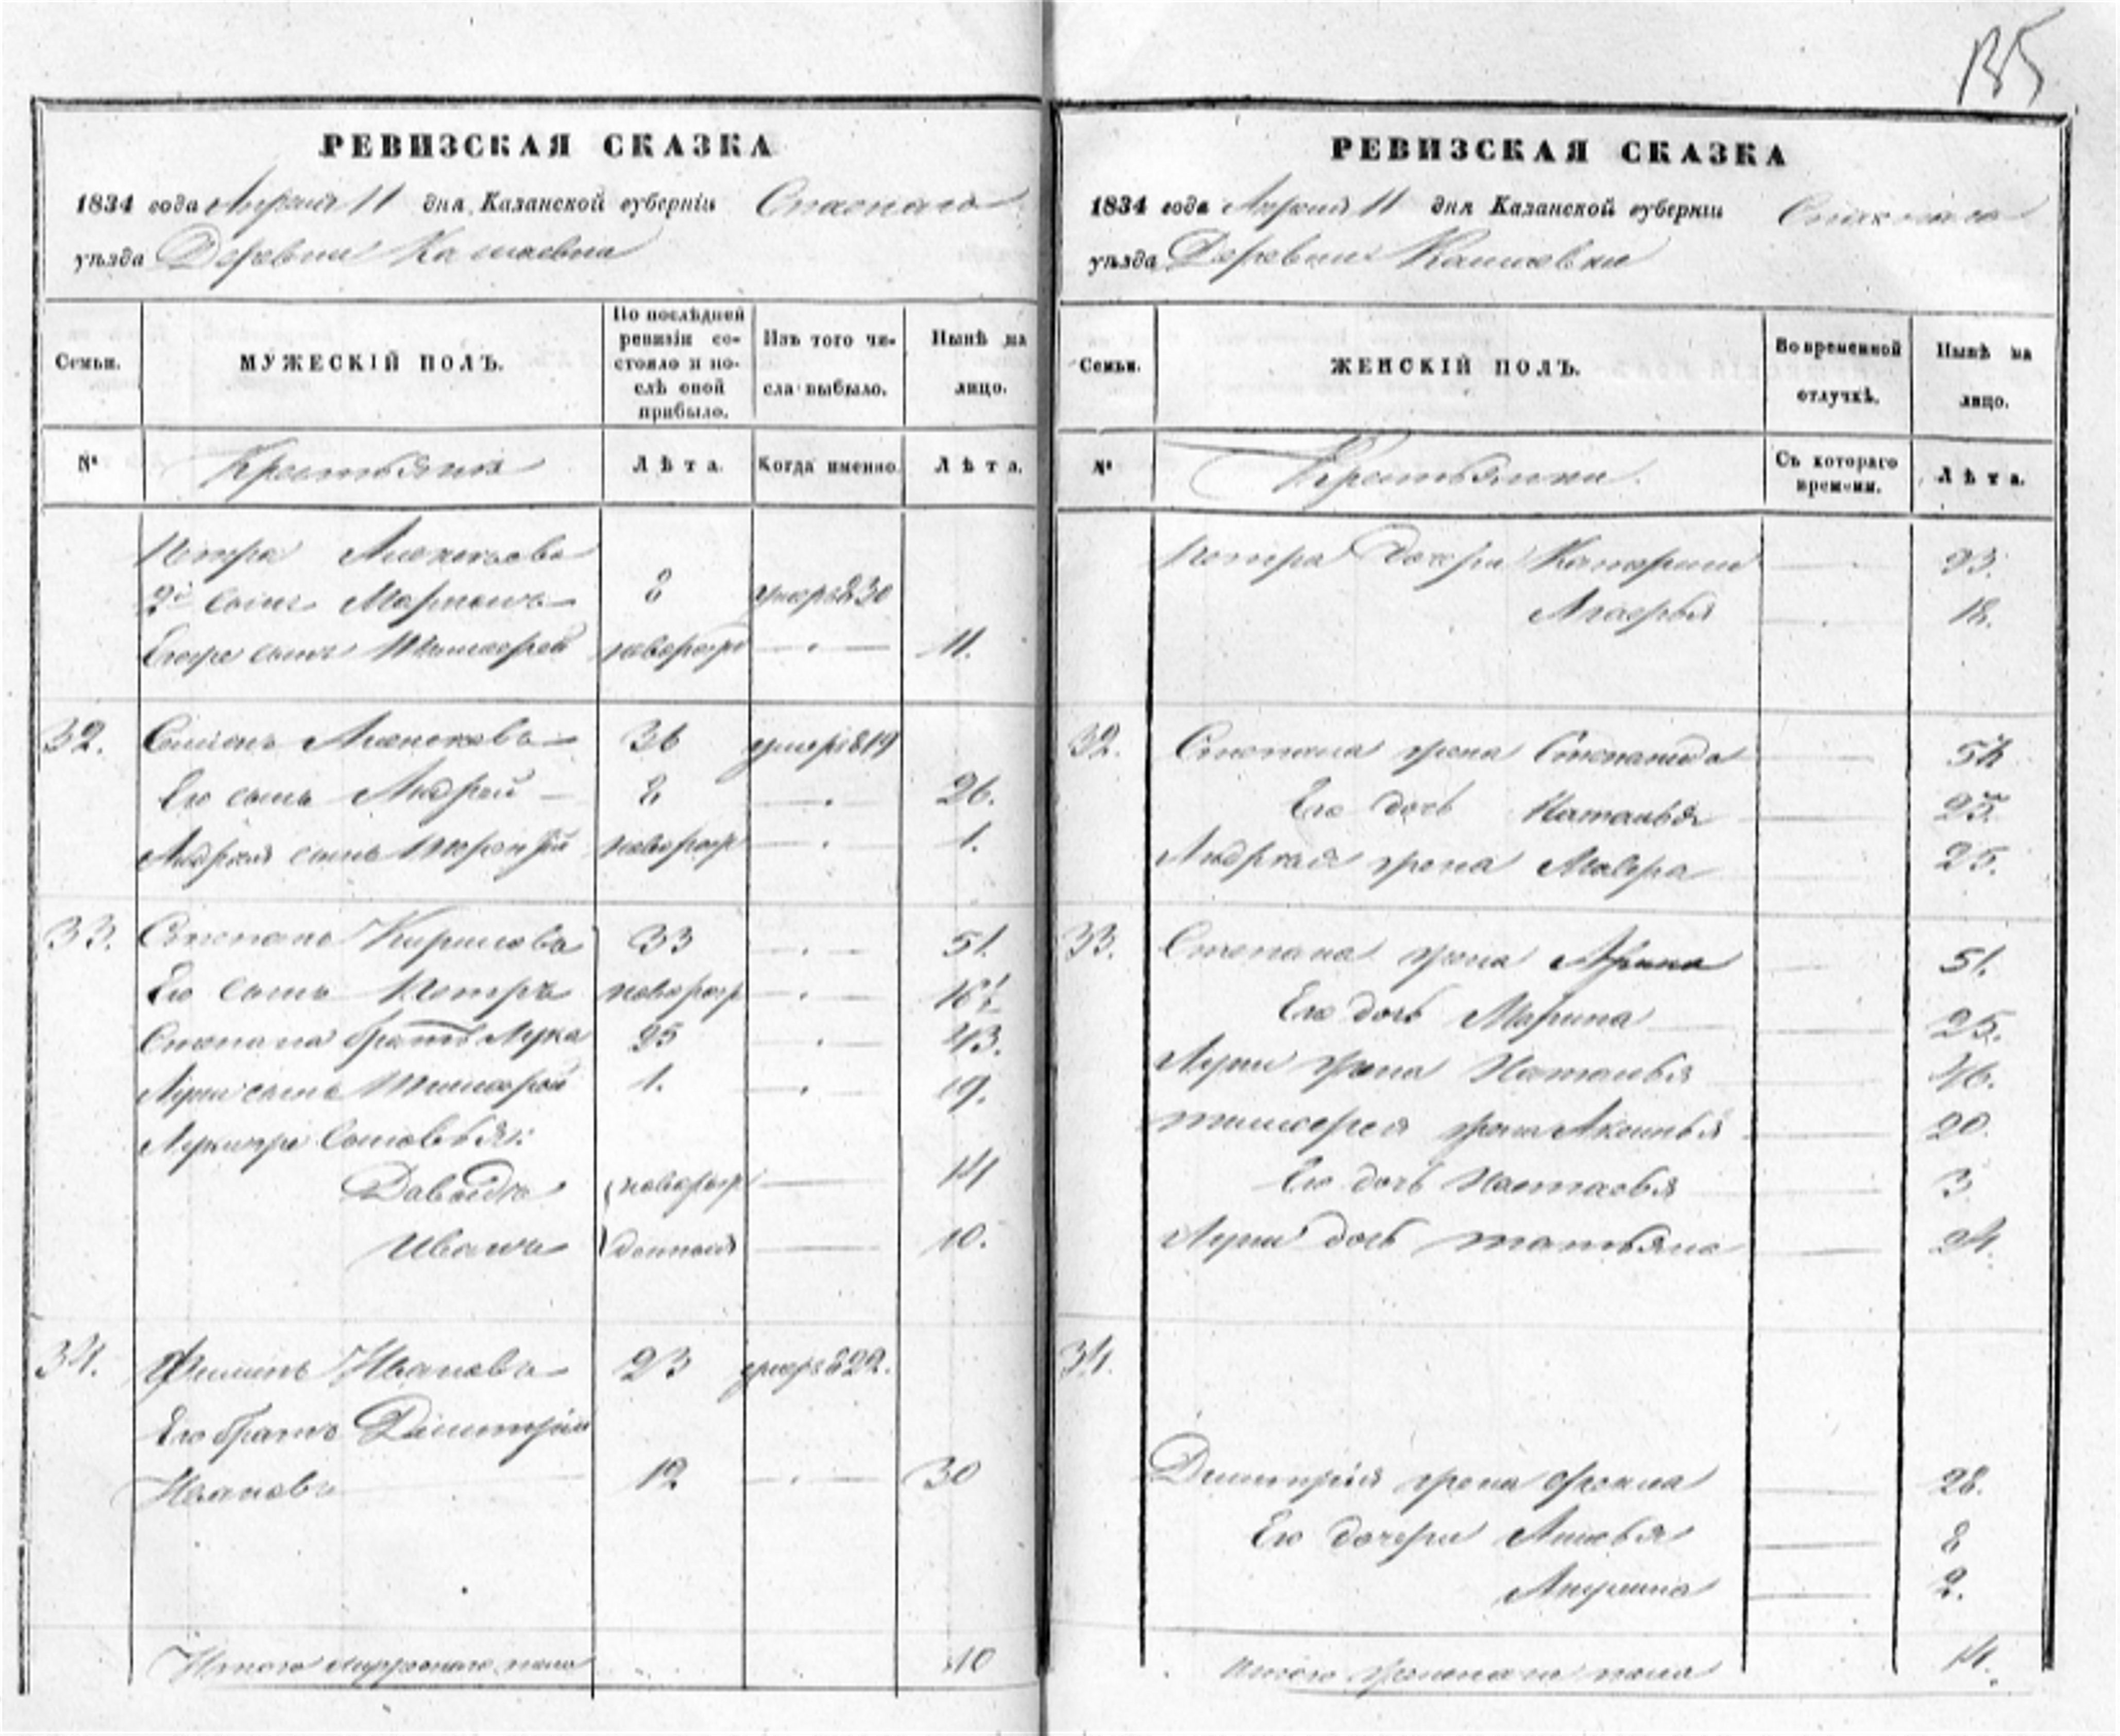 135
РЕВИЗСКАЯ СКАЗКА
1834 года Апреля 11 дня, Казанской губерніи Спаскаго
уѣзда Деревни
Семьи.
МУЖЕСКІЙ ПОЛЪ.
По послѣдней ревизіи состояло и послѣ оной прибыло.
Изъ того числа выбыло.
Нынѣ на лицо.
№
Крестьяне
Лѣта.
Когда именно.
Лѣта.
Петра Алексеева
2й сынъ 8 умеръ 830
сынъ Тимофей новорож 11.
32. Алексеевъ 36 умеръ 819
Его сынъ Андрей 8 26.
Андрея сынъ новорож 1.
33. Степанъ Кириловъ 33 51.
Его сынъ Петръ новорож 16½
Степана братъ Лука 25 43.
Луки сынъ Тимофей 1. 19.
Луки же Сыновья:
Давыдъ новорож 14
Иванъ денныя 10.
34. Филипъ Ивановъ 23 умеръ 822.
Его братъ Димитрій
Ивановъ 12 30
Итого мужескаго пола 10
РЕВИЗСКАЯ СКАЗКА
1834 года Апреля 11 дня Казанской губерніи Спаскаго
уѣзда Деревни
Семьи.
ЖЕНСКІЙ ПОЛЪ.
Во временной отлучкѣ.
Нынѣ на лицо.
№
Крестьянки.
Съ котораго времени.
Лѣта.
Петра Дочери Катерина 23.
18.
32. Степана жена Степанида 54
Его дочь Наталья 25.
Андрея жена Мавра 25.
33. Степана жена Арина 51.
Его дочь Марина 25.
Луки жена Наталья 46.
Тимофея жена Аксинья 20.
Его дочь Настасья 3
Луки дочь Татьяна 24.
34.
Димитрія жена Фекла 28.
Его дочери 8
Акулина 2.
Итого женскаго пола 14.